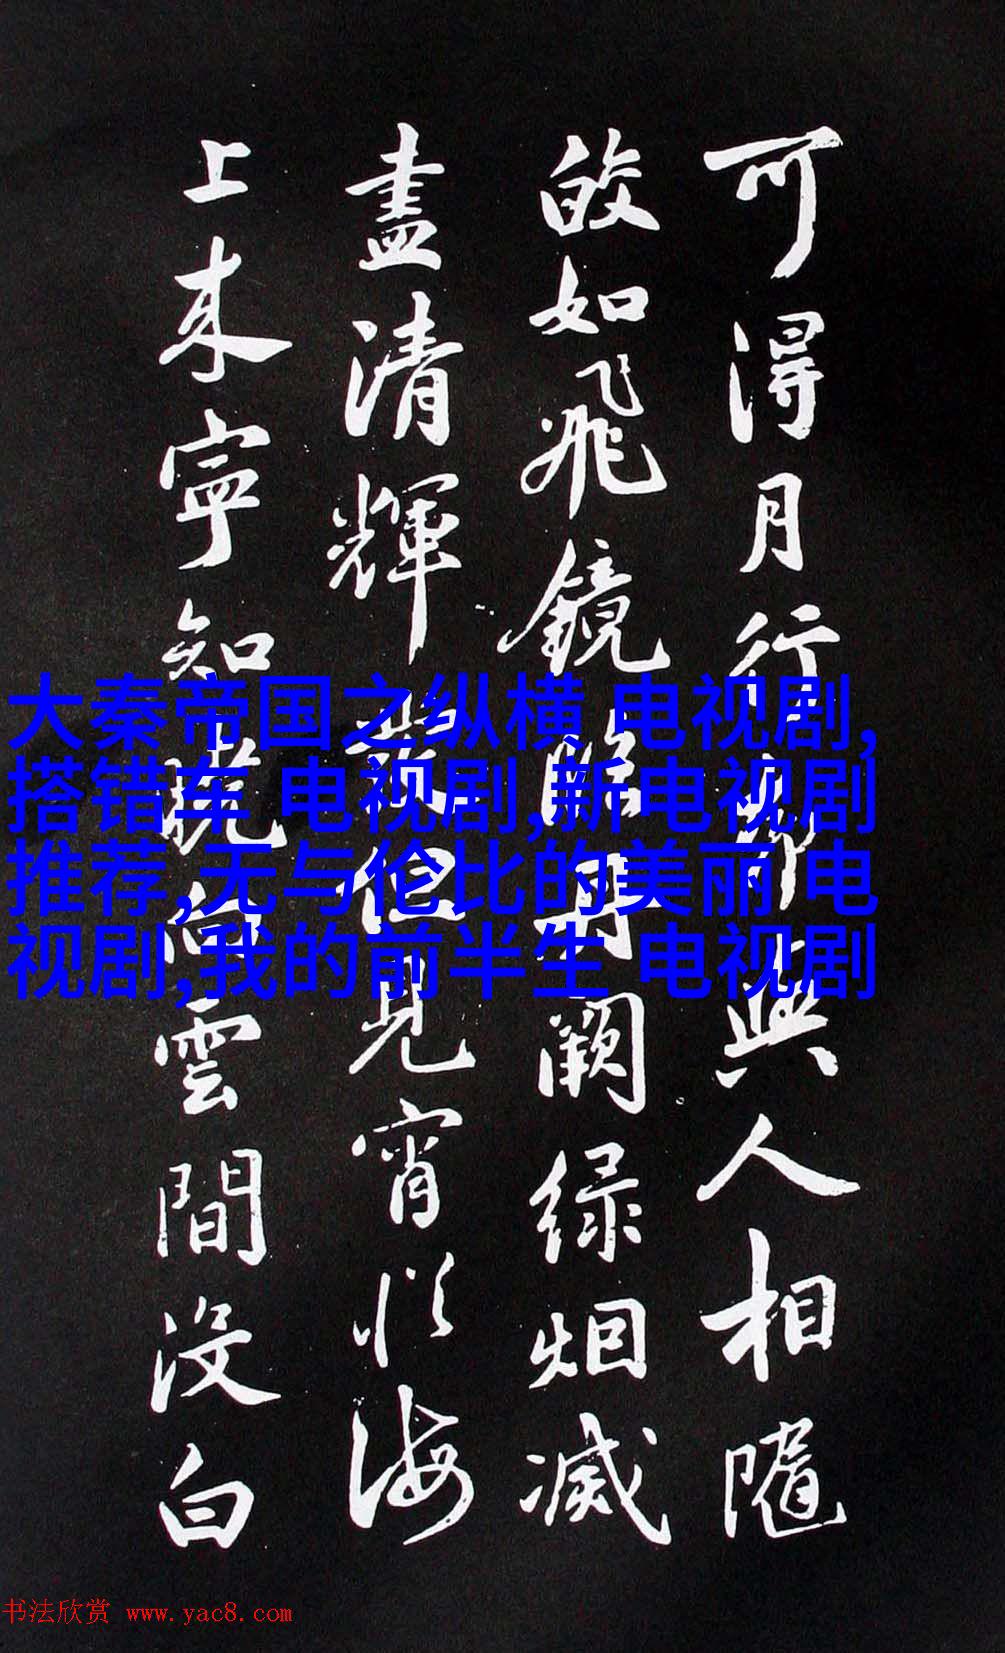 可得月行却與人相隨
皎如飛鏡臨丹闕绿烟滅
盡清輝發但見宵從海
上来寧知曉向雲間没白
大秦帝国之纵横 电视剧,
搭错车 电视剧,新电视剧
推荐,无与伦比的美丽 电
视剧,我的前半生 电视剧
书法欣赏 www.yac8.com